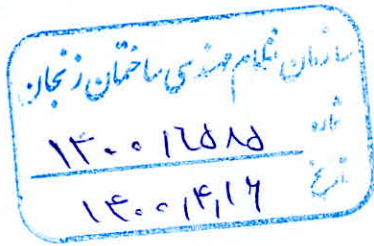 سازمان نظام مهندسی ساختمان زنجان
شماره ۱۴۰۰/۲۵۸۵
تاریخ ۱۴۰۰/۴/۱۶